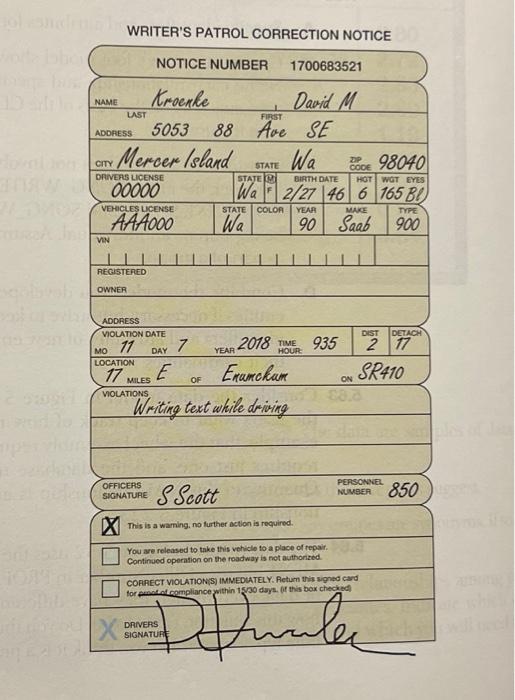 WRITER'S PATROL CORRECTION NOTICE
NOTICE NUMBER 1700683521
NAME Kroenke David M
LAST FIRST
ADDRESS 5053 88 Ave SE
CITY Mercer Island STATE Wa ZIP CODE 98040
DRIVERS LICENSE STATE M BIRTH DATE HGT WGT EYES
00000 Wa F 2/27 46 6 165 Bl
VEHICLES LICENSE STATE COLOR YEAR MAKE TYPE
AAA000 Wa 90 Saab 900
VIN
REGISTERED
OWNER
ADDRESS
VIOLATION DATE DIST DETACH
MO 11 DAY 7 YEAR 2018 TIME HOUR: 935 2 17
LOCATION
17 MILES E OF Enumckum ON SR410
VIOLATIONS
Writing text while driving
OFFICERS SIGNATURE S Scott PERSONNEL NUMBER 850
X This is a warning, no further action is required.
You are released to take this vehicle to a place of repair.
Continued operation on the roadway is not authorized.
CORRECT VIOLATION(S) IMMEDIATELY. Return this signed card
for proof of compliance within 15/30 days. (if this box checked)
X DRIVERS
SIGNATURE